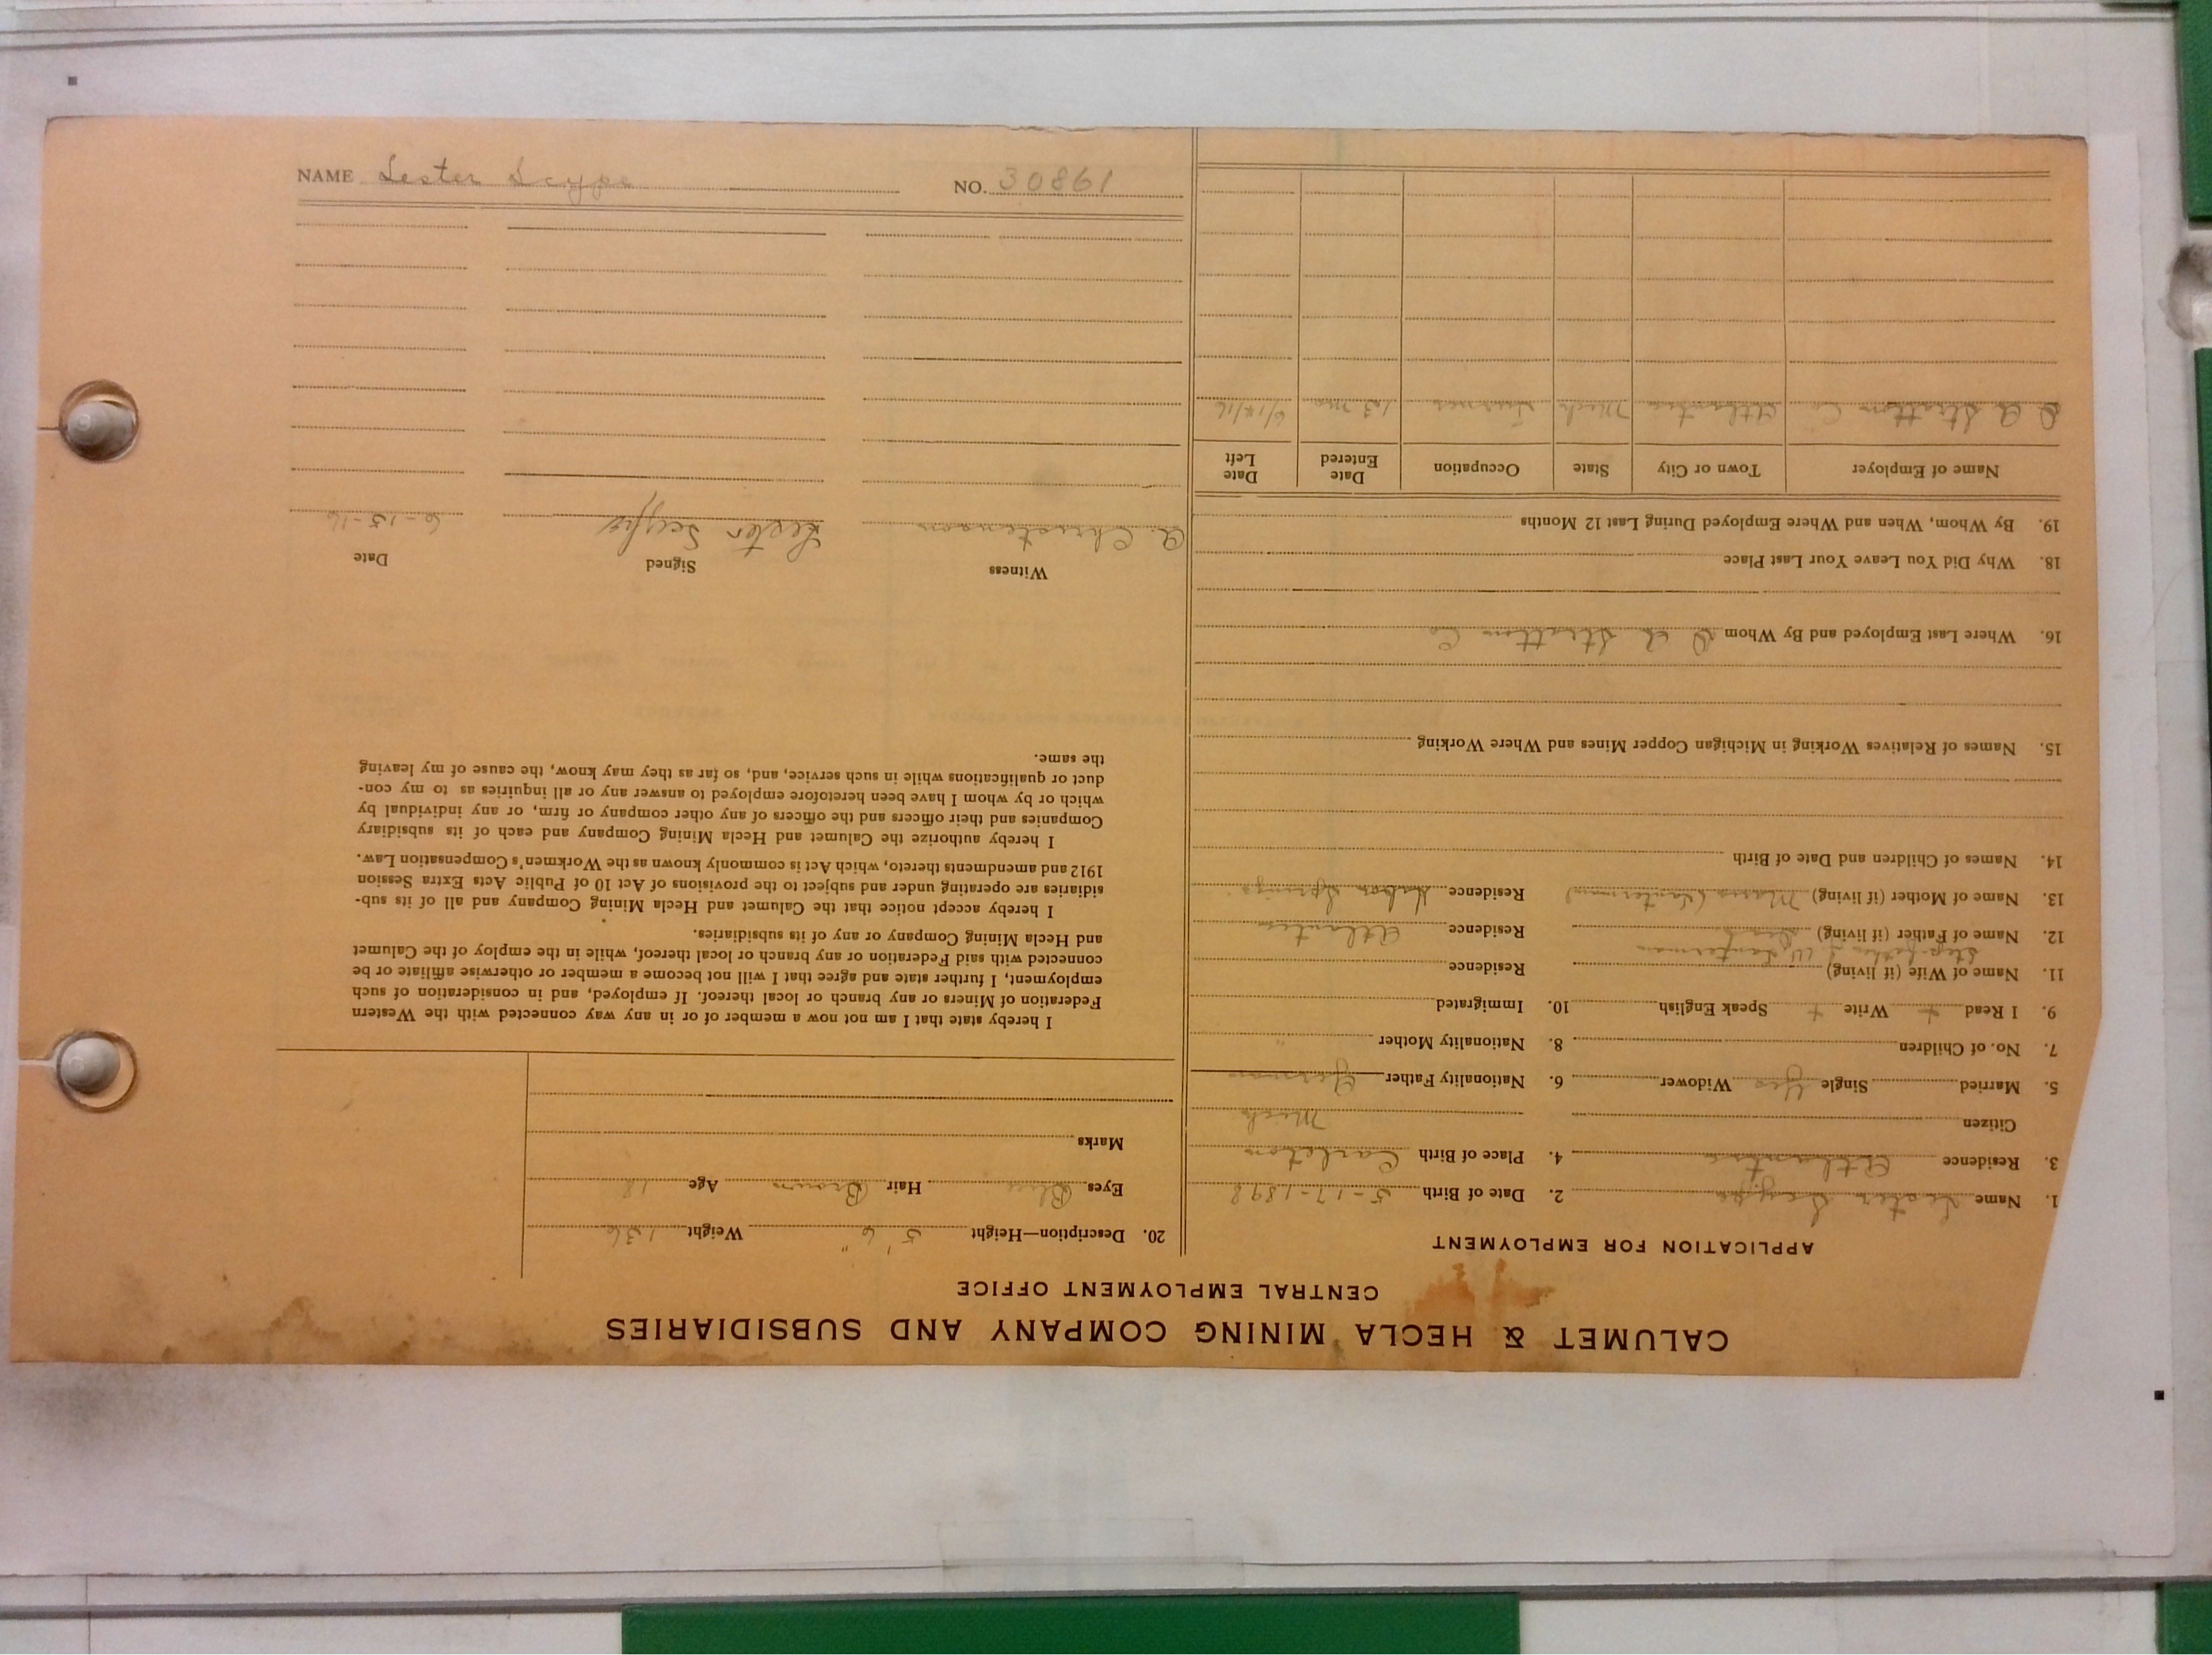 NAME Lester Scype NO. 30861
CALUMET & HECLA MINING COMPANY AND SUBSIDIARIES
CENTRAL EMPLOYMENT OFFICE
APPLICATION FOR EMPLOYMENT
1. Name Lester Scype 2. Date of Birth 5-17-1898
3. Residence Atlantic 4. Place of Birth Carleton
Citizen Mich
5. Married Single Yes Widower 6. Nationality Father German
7. No. of Children 8. Nationality Mother "
9. I Read + Write + Speak English 10. Immigrated
11. Name of Wife (if living) Residence
Step-father
12. Name of Father (if living) Residence Atlantic
13. Name of Mother (if living) Residence Springs
14. Names of Children and Date of Birth
15. Names of Relatives Working in Michigan Copper Mines and Where Working
16. Where Last Employed and By Whom D A Stratton Co
18. Why Did You Leave Your Last Place
19. By Whom, When and Where Employed During Last 12 Months
Name of Employer Town or City State Occupation Date Entered Date Left
D A Stratton Co Atlantic Mich 6/14/16
20. Description—Height 5' 6" Weight 136
Eyes Blue Hair Brown Age 18
Marks
I hereby state that I am not now a member of or in any way connected with the Western
Federation of Miners or any branch or local thereof. If employed, and in consideration of such
employment, I further state and agree that I will not become a member or otherwise affiliate or be
connected with said Federation or any branch or local thereof, while in the employ of the Calumet
and Hecla Mining Company or any of its subsidiaries.
I hereby accept notice that the Calumet and Hecla Mining Company and all of its sub-
sidiaries are operating under and subject to the provisions of Act 10 of Public Acts Extra Session
1912 and amendments thereto, which Act is commonly known as the Workmen's Compensation Law.
I hereby authorize the Calumet and Hecla Mining Company and each of its subsidiary
Companies and their officers and the officers of any other company or firm, or any individual by
which or by whom I have been heretofore employed to answer any or all inquiries as to my con-
duct or qualifications while in such service, and, so far as they may know, the cause of my leaving
the same.
Witness Signed Date
A. Christenson Lester Scype 6-15-16